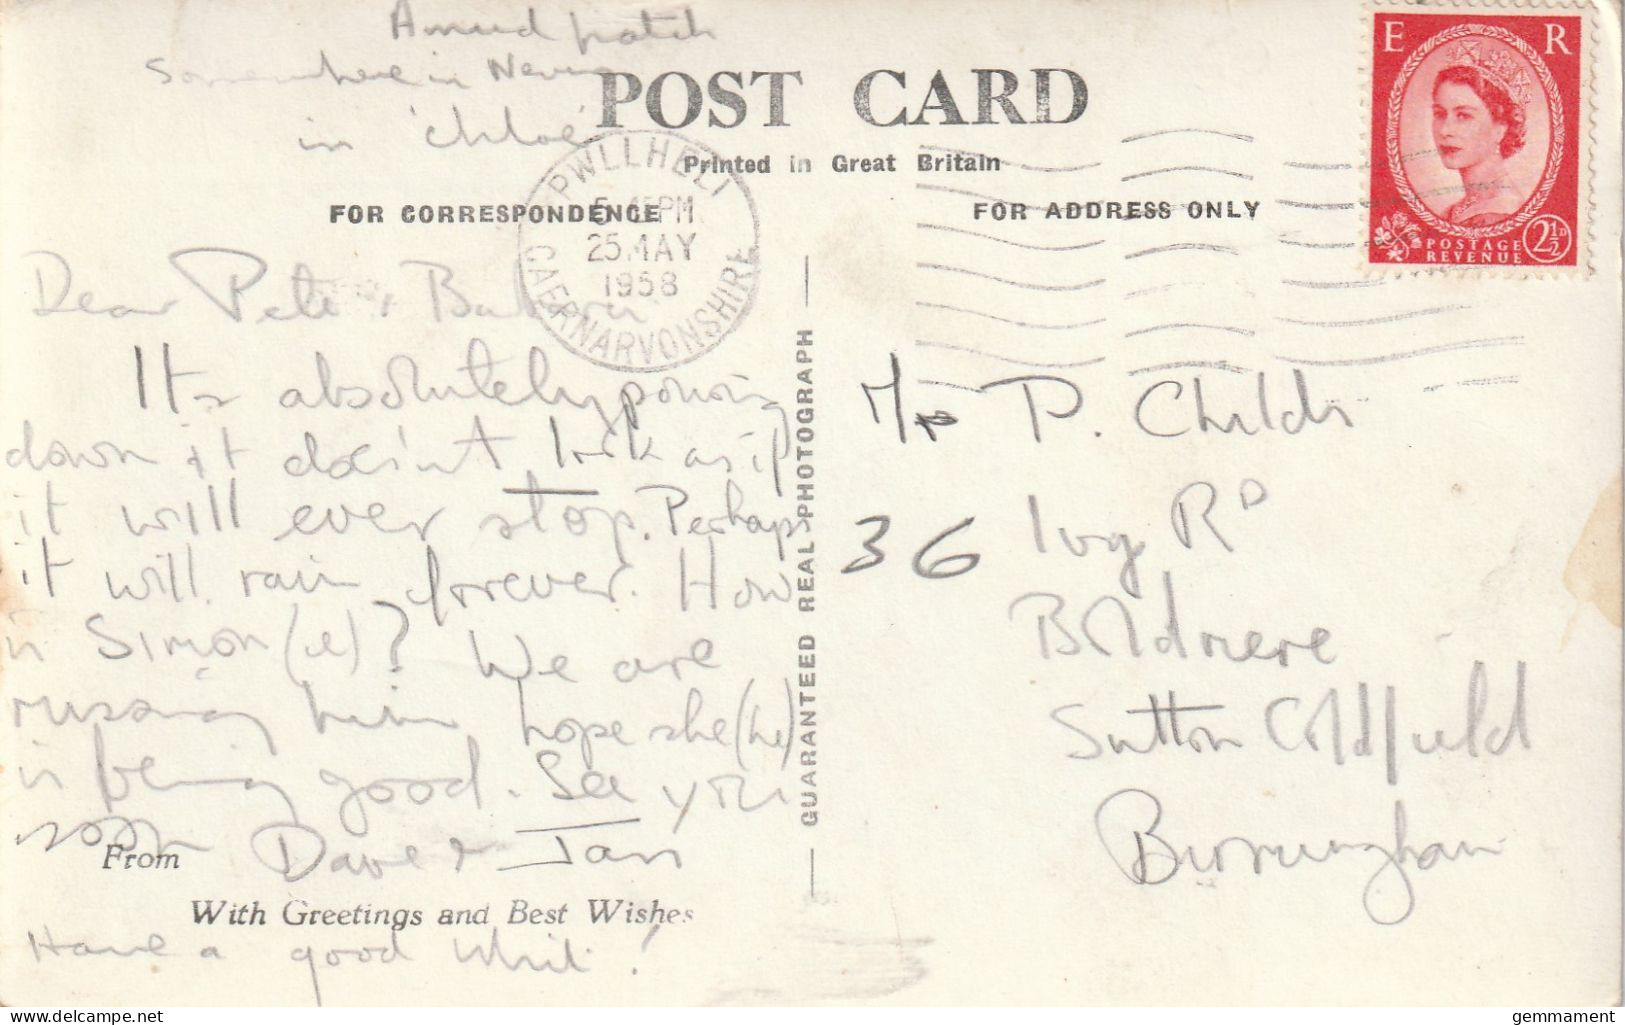 A mud patch
Somewhere in Nevin
in 'Chloe'
POST CARD
Printed in Great Britain
FOR CORRESPONDENCE
FOR ADDRESS ONLY
E R
POSTAGE
REVENUE
2½D
PWLLHELI
5 45 PM
25 MAY
1958
CAERNARVONSHIRE
Dear Pete &
Its absolutely pouring
down & it does'nt look as if
it will ever stop. Perhaps
it will rain forever. How
is Simon(e)? We are
missing him hope she (he)
is being good. See you
soon
From
Dave & Jan
With Greetings and Best Wishes
Have a good Whit!
GUARANTEED REAL PHOTOGRAPH
P. Childs
36 Ivy Rd
Boldmere
Sutton Coldfield
Birmingham
delcampe.net
gemmament